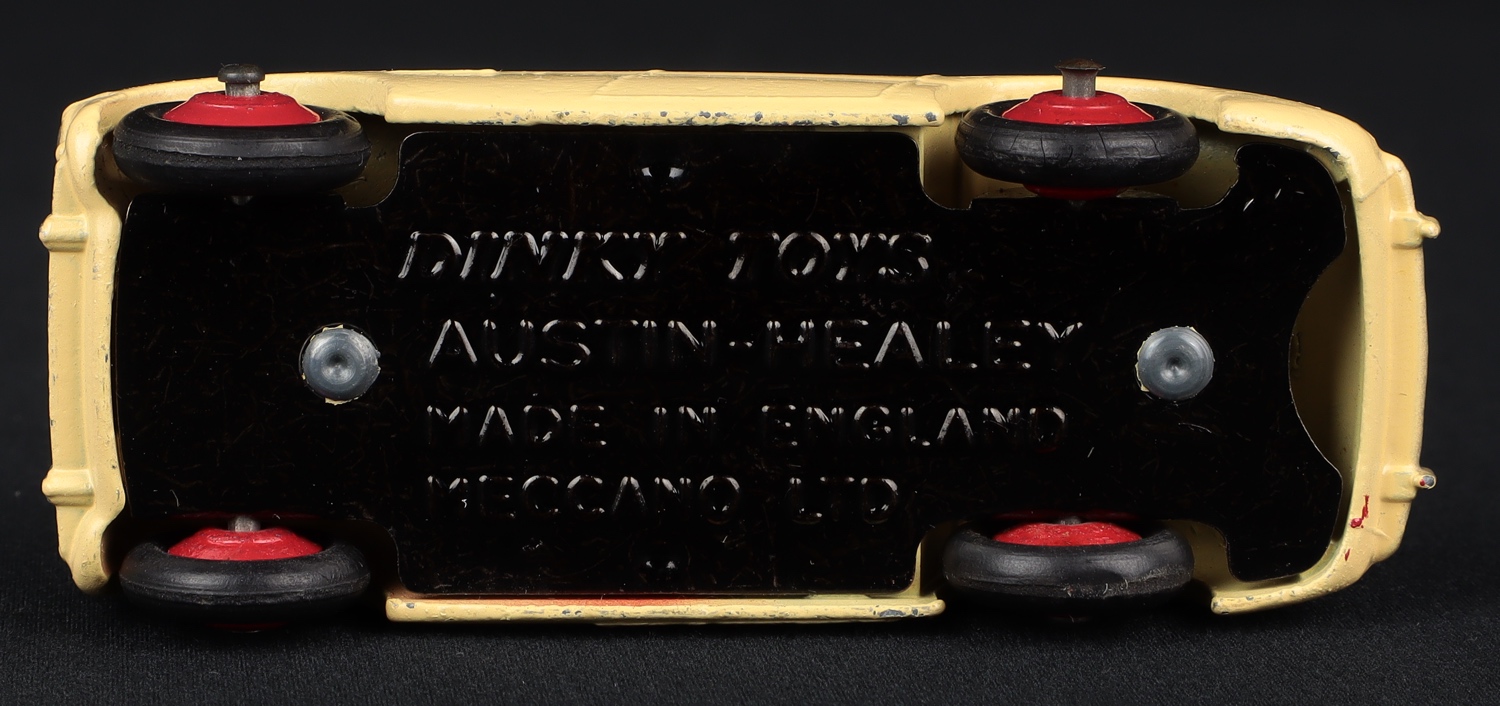 DINKY TOYS
AUSTIN-HEALEY
MADE IN ENGLAND
MECCANO LTD